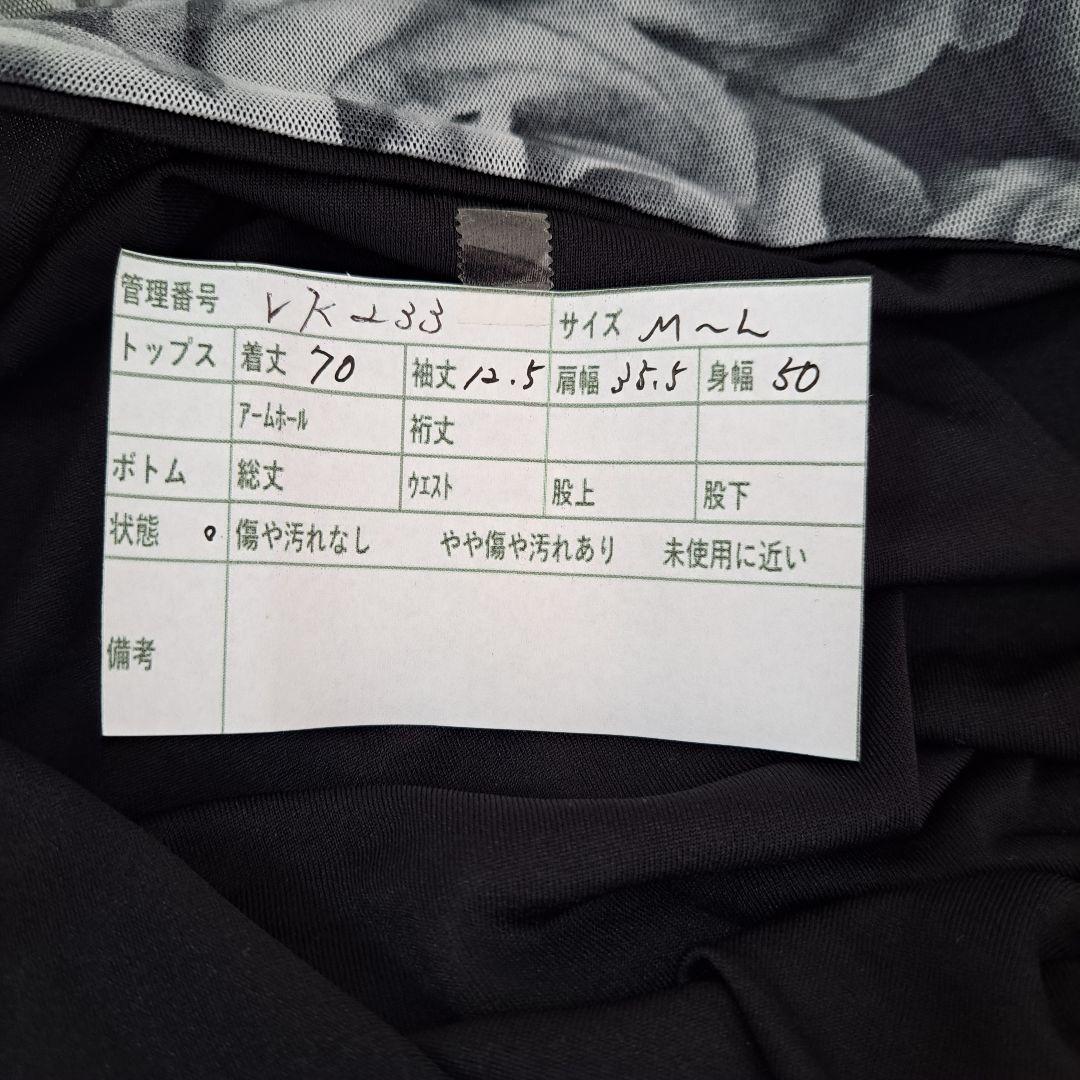 管理番号 VK233 サイズ M～L
トップス 着丈 70 袖丈 12.5 肩幅 35.5 身幅 50
アームホール 裄丈
ボトム 総丈 ウエスト 股上 股下
状態 。 傷や汚れなし やや傷や汚れあり 未使用に近い
備考